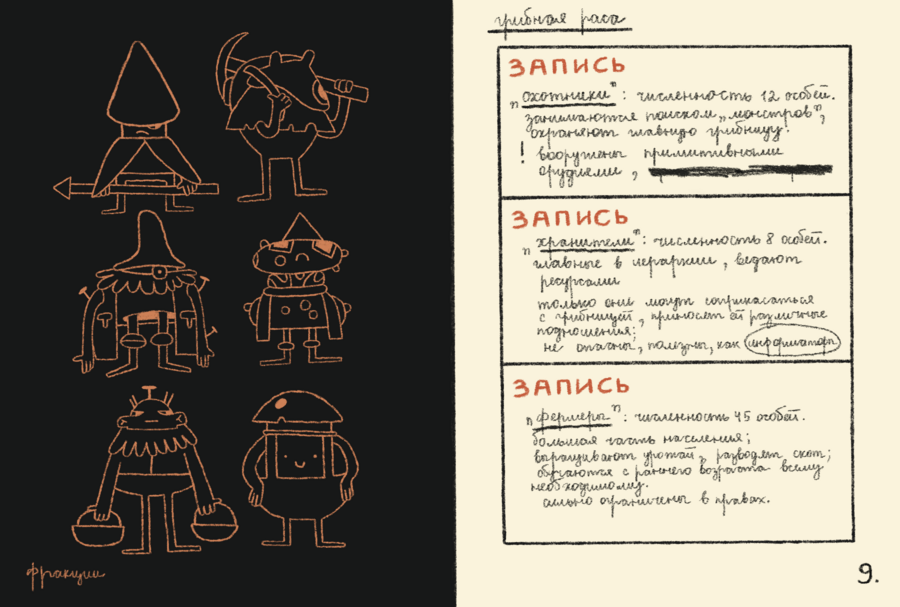 фракции
грибная раса
ЗАПИСЬ
"охотники": численность 12 особей.
занимаются поиском "монстров",
охраняют главную грибницу.
! вооружены примитивными
орудиями,
ЗАПИСЬ
"хранители": численность 8 особей.
главные в иерархии, ведают
ресурсами
только они могут соприкасаться
с грибницей, приносят ей различные
подношения;
не опасны, полезны, как информаторы
ЗАПИСЬ
"фермеры": численность 45 особей.
большая часть населения;
выращивают урожай, разводят скот;
обучаются с раннего возраста всему
необходимому.
сильно ограничены в правах.
9.